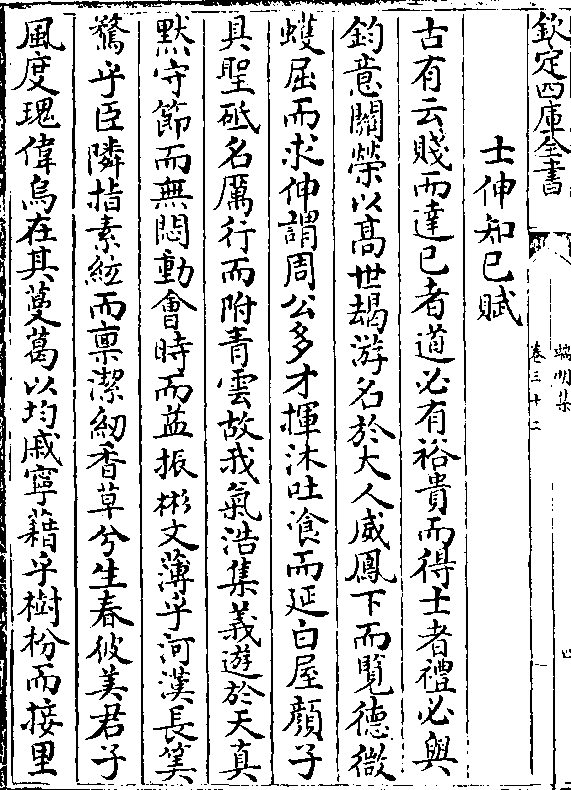 欽定四庫全書
端明集
卷三十二
四
士伸知已賦
古有云賤而達已者道必有裕貴而得士者禮必與
鈞意關榮以髙世朅游名於大人威鳳下而覽德微
蠖屈而求伸謂周公多才揮沐吐飡而延白屋顔子
具聖砥名厲行而附青雲故我氣浩集義遊於天真
默守節而無悶動會時而益振彬文薄乎河漢長筭
驁乎臣隣指素紘而禀潔紉香草兮生春彼美君子
風度瑰偉烏在其蔓葛以均戚寧藉乎樹枌而接里